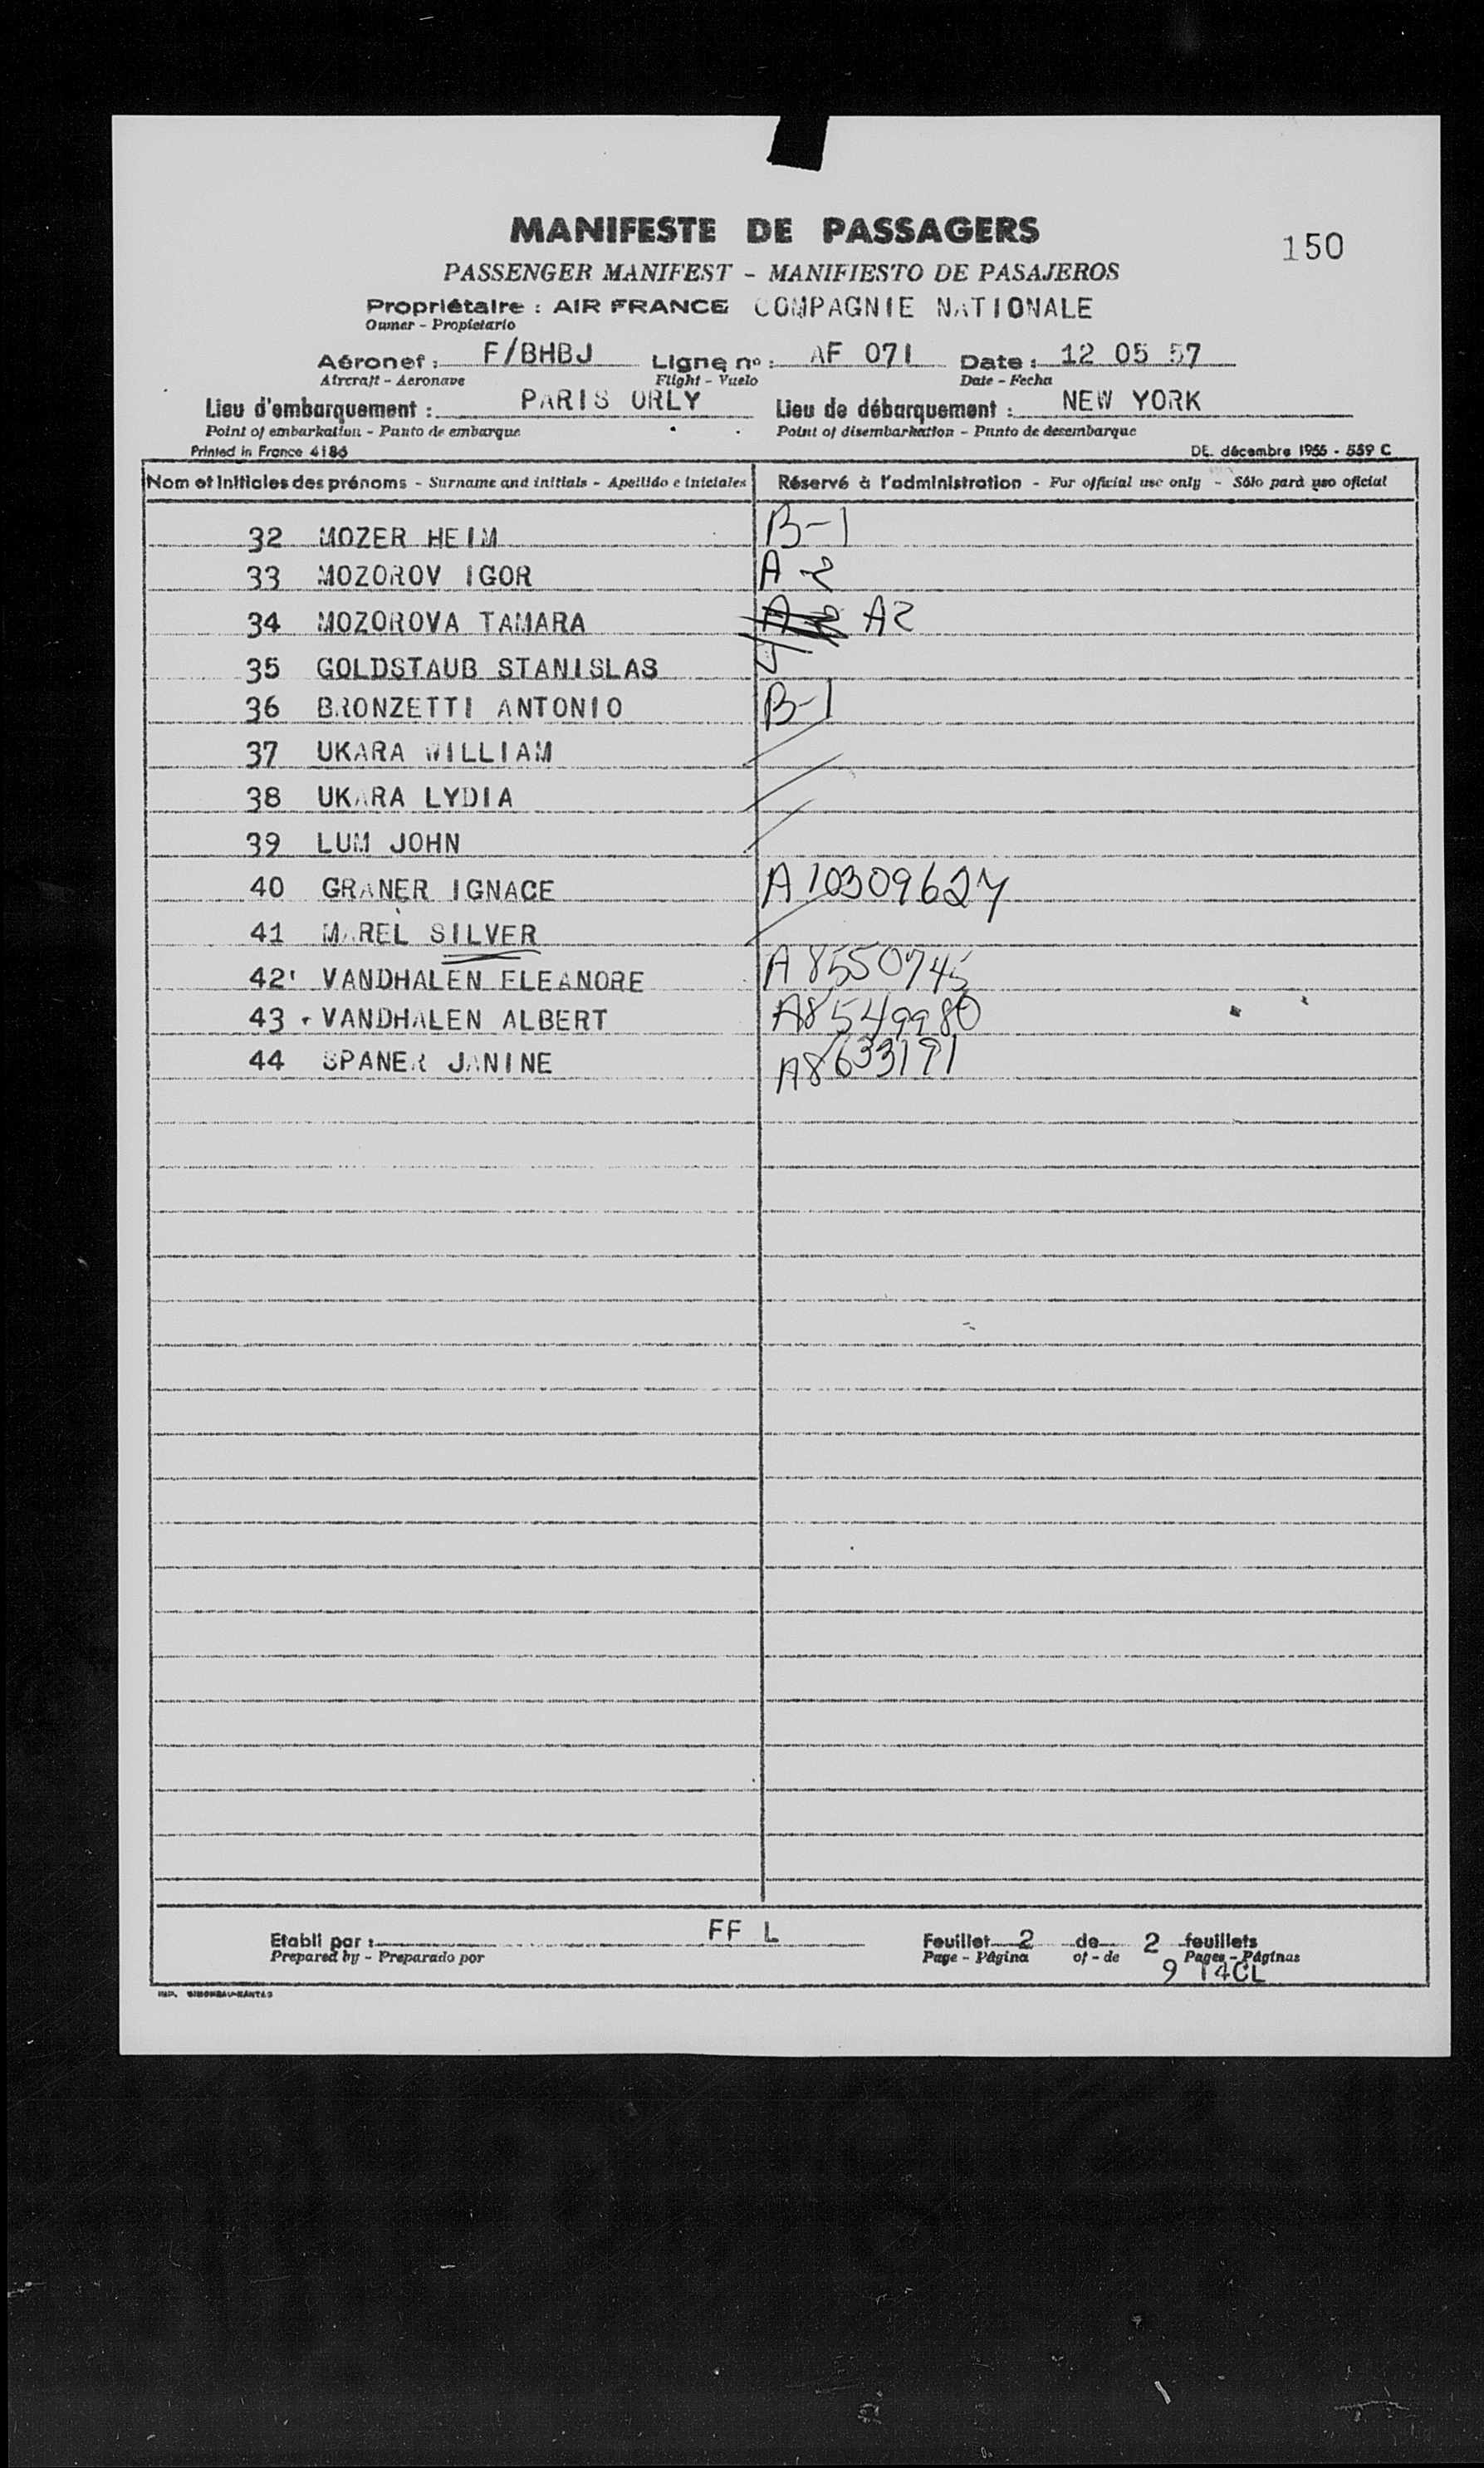 MANIFESTE DE PASSAGERS
150
PASSENGER MANIFEST - MANIFIESTO DE PASAJEROS
Propriétaire : AIR FRANCE COMPAGNIE NATIONALE
Owner - Propietario
Aéronef : F/BHBJ Ligne nº : AF 071 Date : 12 05 57
Aircraft - Aeronave Flight - Vuelo Date - Fecha
Lieu d'embarquement : PARIS ORLY Lieu de débarquement : NEW YORK
Point of embarkation - Punto de embarque Point of disembarkation - Punto de desembarque
Printed in France 4186 DE. décembre 1955 - 559 C
Nom et initiales des prénoms - Surname and initials - Apellido e iniciales Réservé à l'administration - For official use only - Sólo para uso oficial
32 MOZER HEIM B-1
33 MOZOROV IGOR A-2
34 MOZOROVA TAMARA A2
35 GOLDSTAUB STANISLAS
36 BRONZETTI ANTONIO B-1
37 UKARA WILLIAM
38 UKARA LYDIA
39 LUM JOHN
40 GRANER IGNACE A10309627
41 MAREL SILVER
42 VANDHALEN ELEANORE A8550745
43 VANDHALEN ALBERT A8549980
44 SPANER JANINE A8633191
Etabli par : FF L Feuillet 2 de 2 feuillets
Prepared by - Preparado por Page - Página of - de Pages - Páginas
9 14CL
IMP.